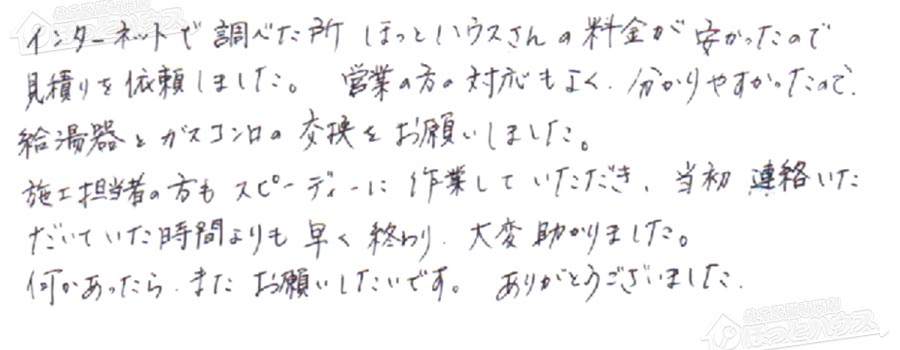 インターネットで調べた所 ほっとハウスさんの料金が安かったので
見積りを依頼しました。 営業の方の対応もよく、分かりやすかったので、
給湯器とガスコンロの交換をお願いしました。
施工担当者の方もスピーディーに作業していただき、当初連絡いた
だいていた時間よりも早く終わり、大変助かりました。
何かあったら、またお願いしたいです。 ありがとうございました。
ほっとハウス